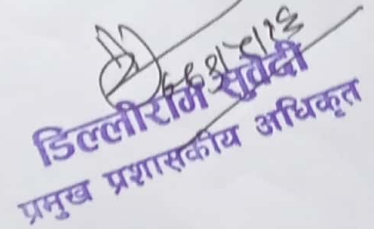 डिल्लीराम सुवेदी
प्रमुख प्रशासकीय अधिकृत